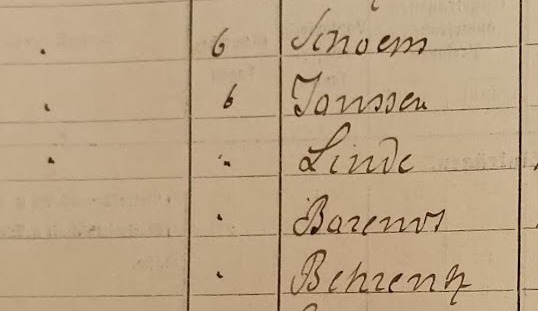 6 Schoem
6 Janssen
" Linde
Barends
Behrentz